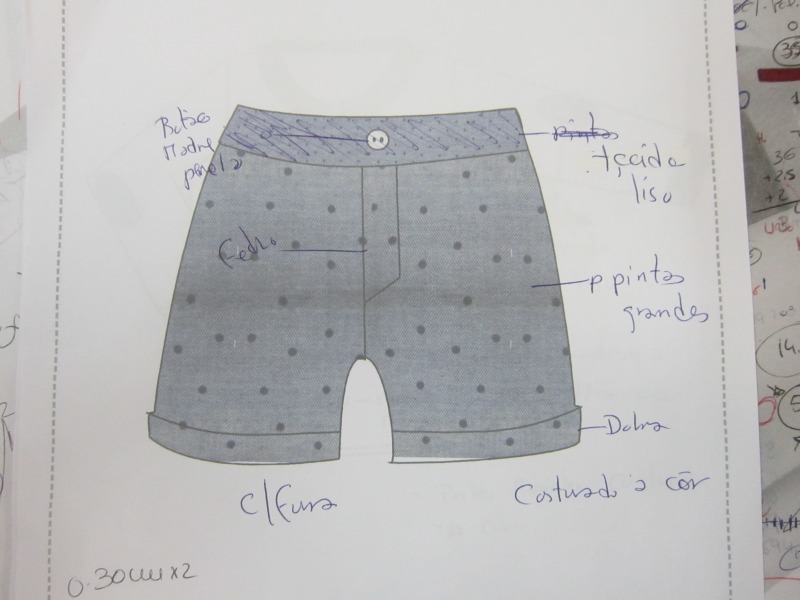 Botão
Madre
perola
tecido
liso
Fecho
p pintas
grandes
Dobra
Costurado a côr
0.30cm x2
36
14.